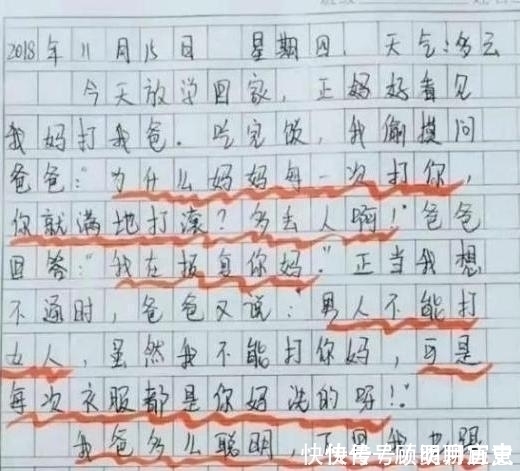 2018年11月15日 星期四 天气:多云
今天放学回家,正妈好看见
我妈打我爸.吃完饭,我偷摸问
爸爸:"为什么妈妈每一次打你,
你就满地打滚?多丢人啊!"爸爸
回答:"我在报复你妈."正当我想
不通时,爸爸又说:"男人不能打
女人,虽然我不能打你妈,可是
每次衣服都是你妈洗的呀!"
我爸多么聪明,下回我也
快传号